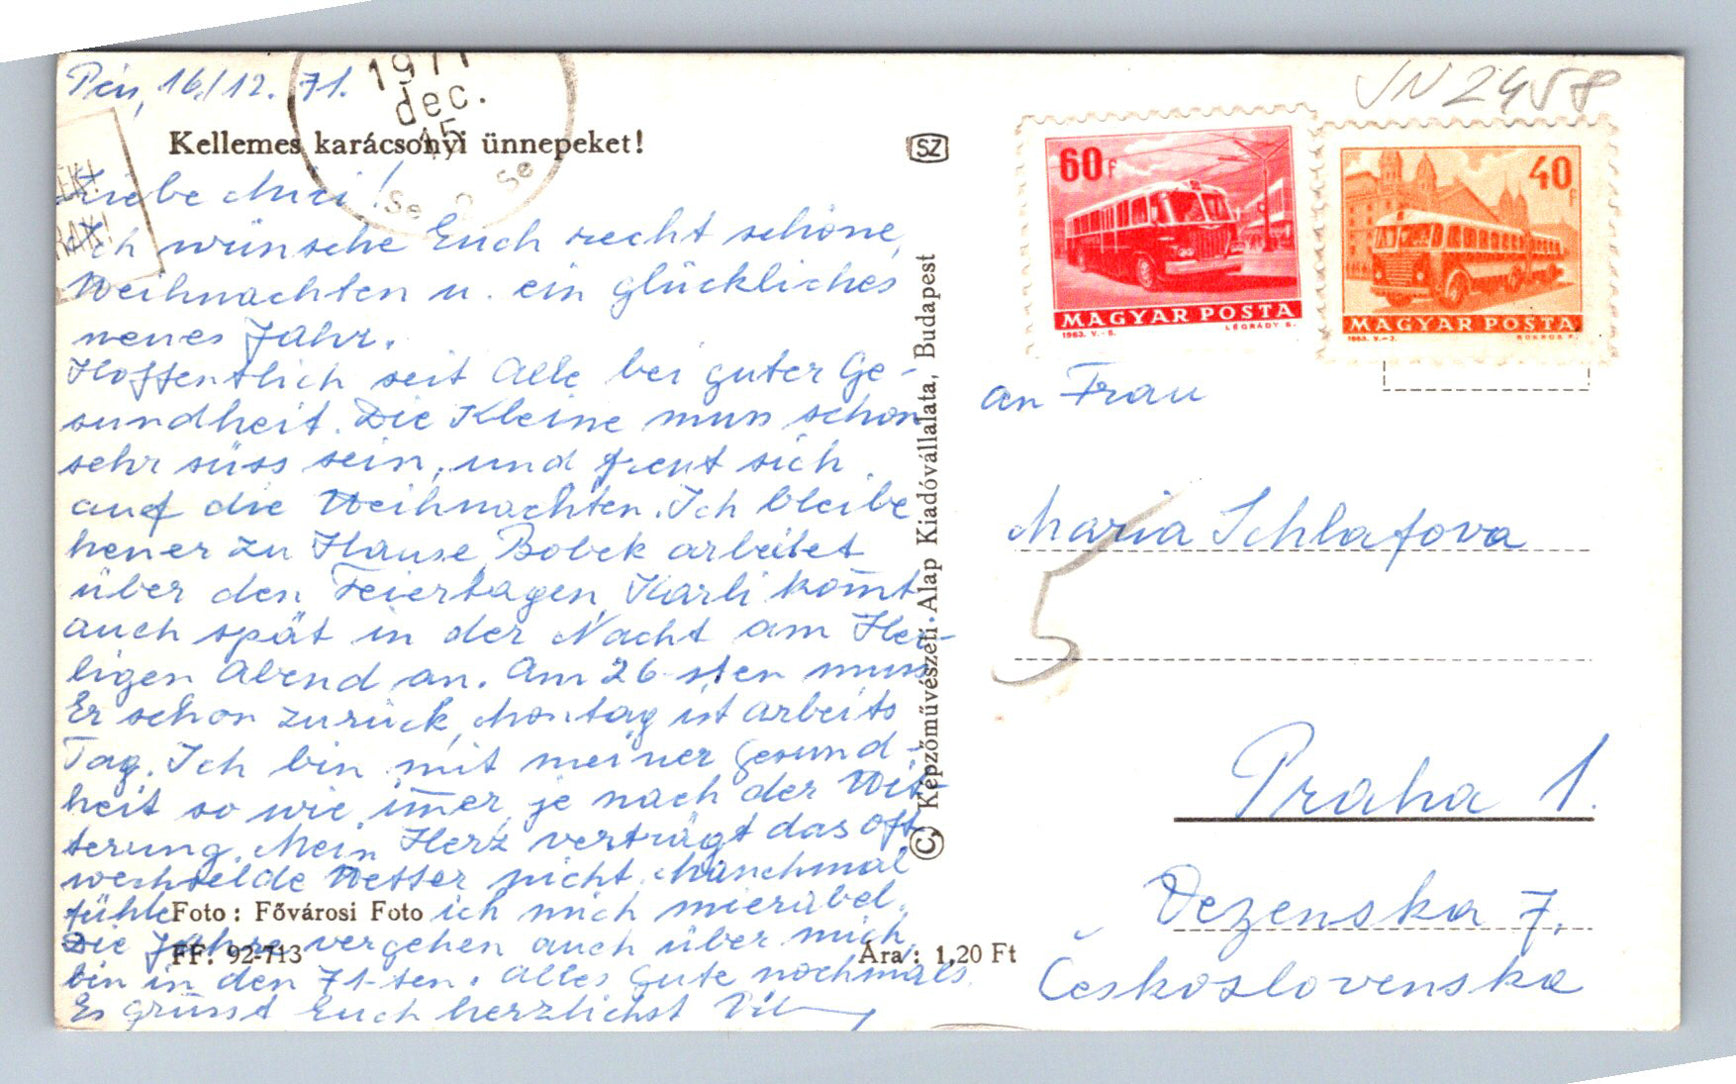 16/12. 71.
1971
dec.
15
Kellemes karácsonyi ünnepeket!
SZ
Liebe Mici!
Ich wünsche Euch recht schöne
Weihnachten u. ein glückliches
neues Jahr.
Hoffentlich seit Alle bei guter Ge-
sundheit. Die Kleine muss schon
sehr süss sein, und freut sich
auf die Weihnachten. Ich bleibe
heuer zu Hause, Bobek arbeitet
über den Feiertagen, Karli kom̄t
auch spät in der Nacht am Hei-
ligen Abend an. Am 26-sten muss
Er schon zurück, Montag ist arbeits
Tag. Ich bin mit meiner Gesund-
heit so wie im̄er, je nach der Wit-
terung. Mein Herz verträgt das oft
wechselde Wetter nicht. Manchmal
fühle ich mich mierabel.
Die Jahre vergehen auch über mich,
bin in den 71-ten. Alles Gute nochmals
Es grüsst Euch herzlichst
Foto: Fővárosi Foto
FF. 92-713
Ára: 1,20 Ft
© Képzőművészeti Alap Kiadóvállalata, Budapest
JN 2458
60f
MAGYAR POSTA
1963. V.-S.
LÉGRÁDY S.
40f
MAGYAR POSTA
1963. V.-J.
BOKROS F.
an Frau
Maria Schlafova
5
Praha 1.
Vezenska 7.
Československa